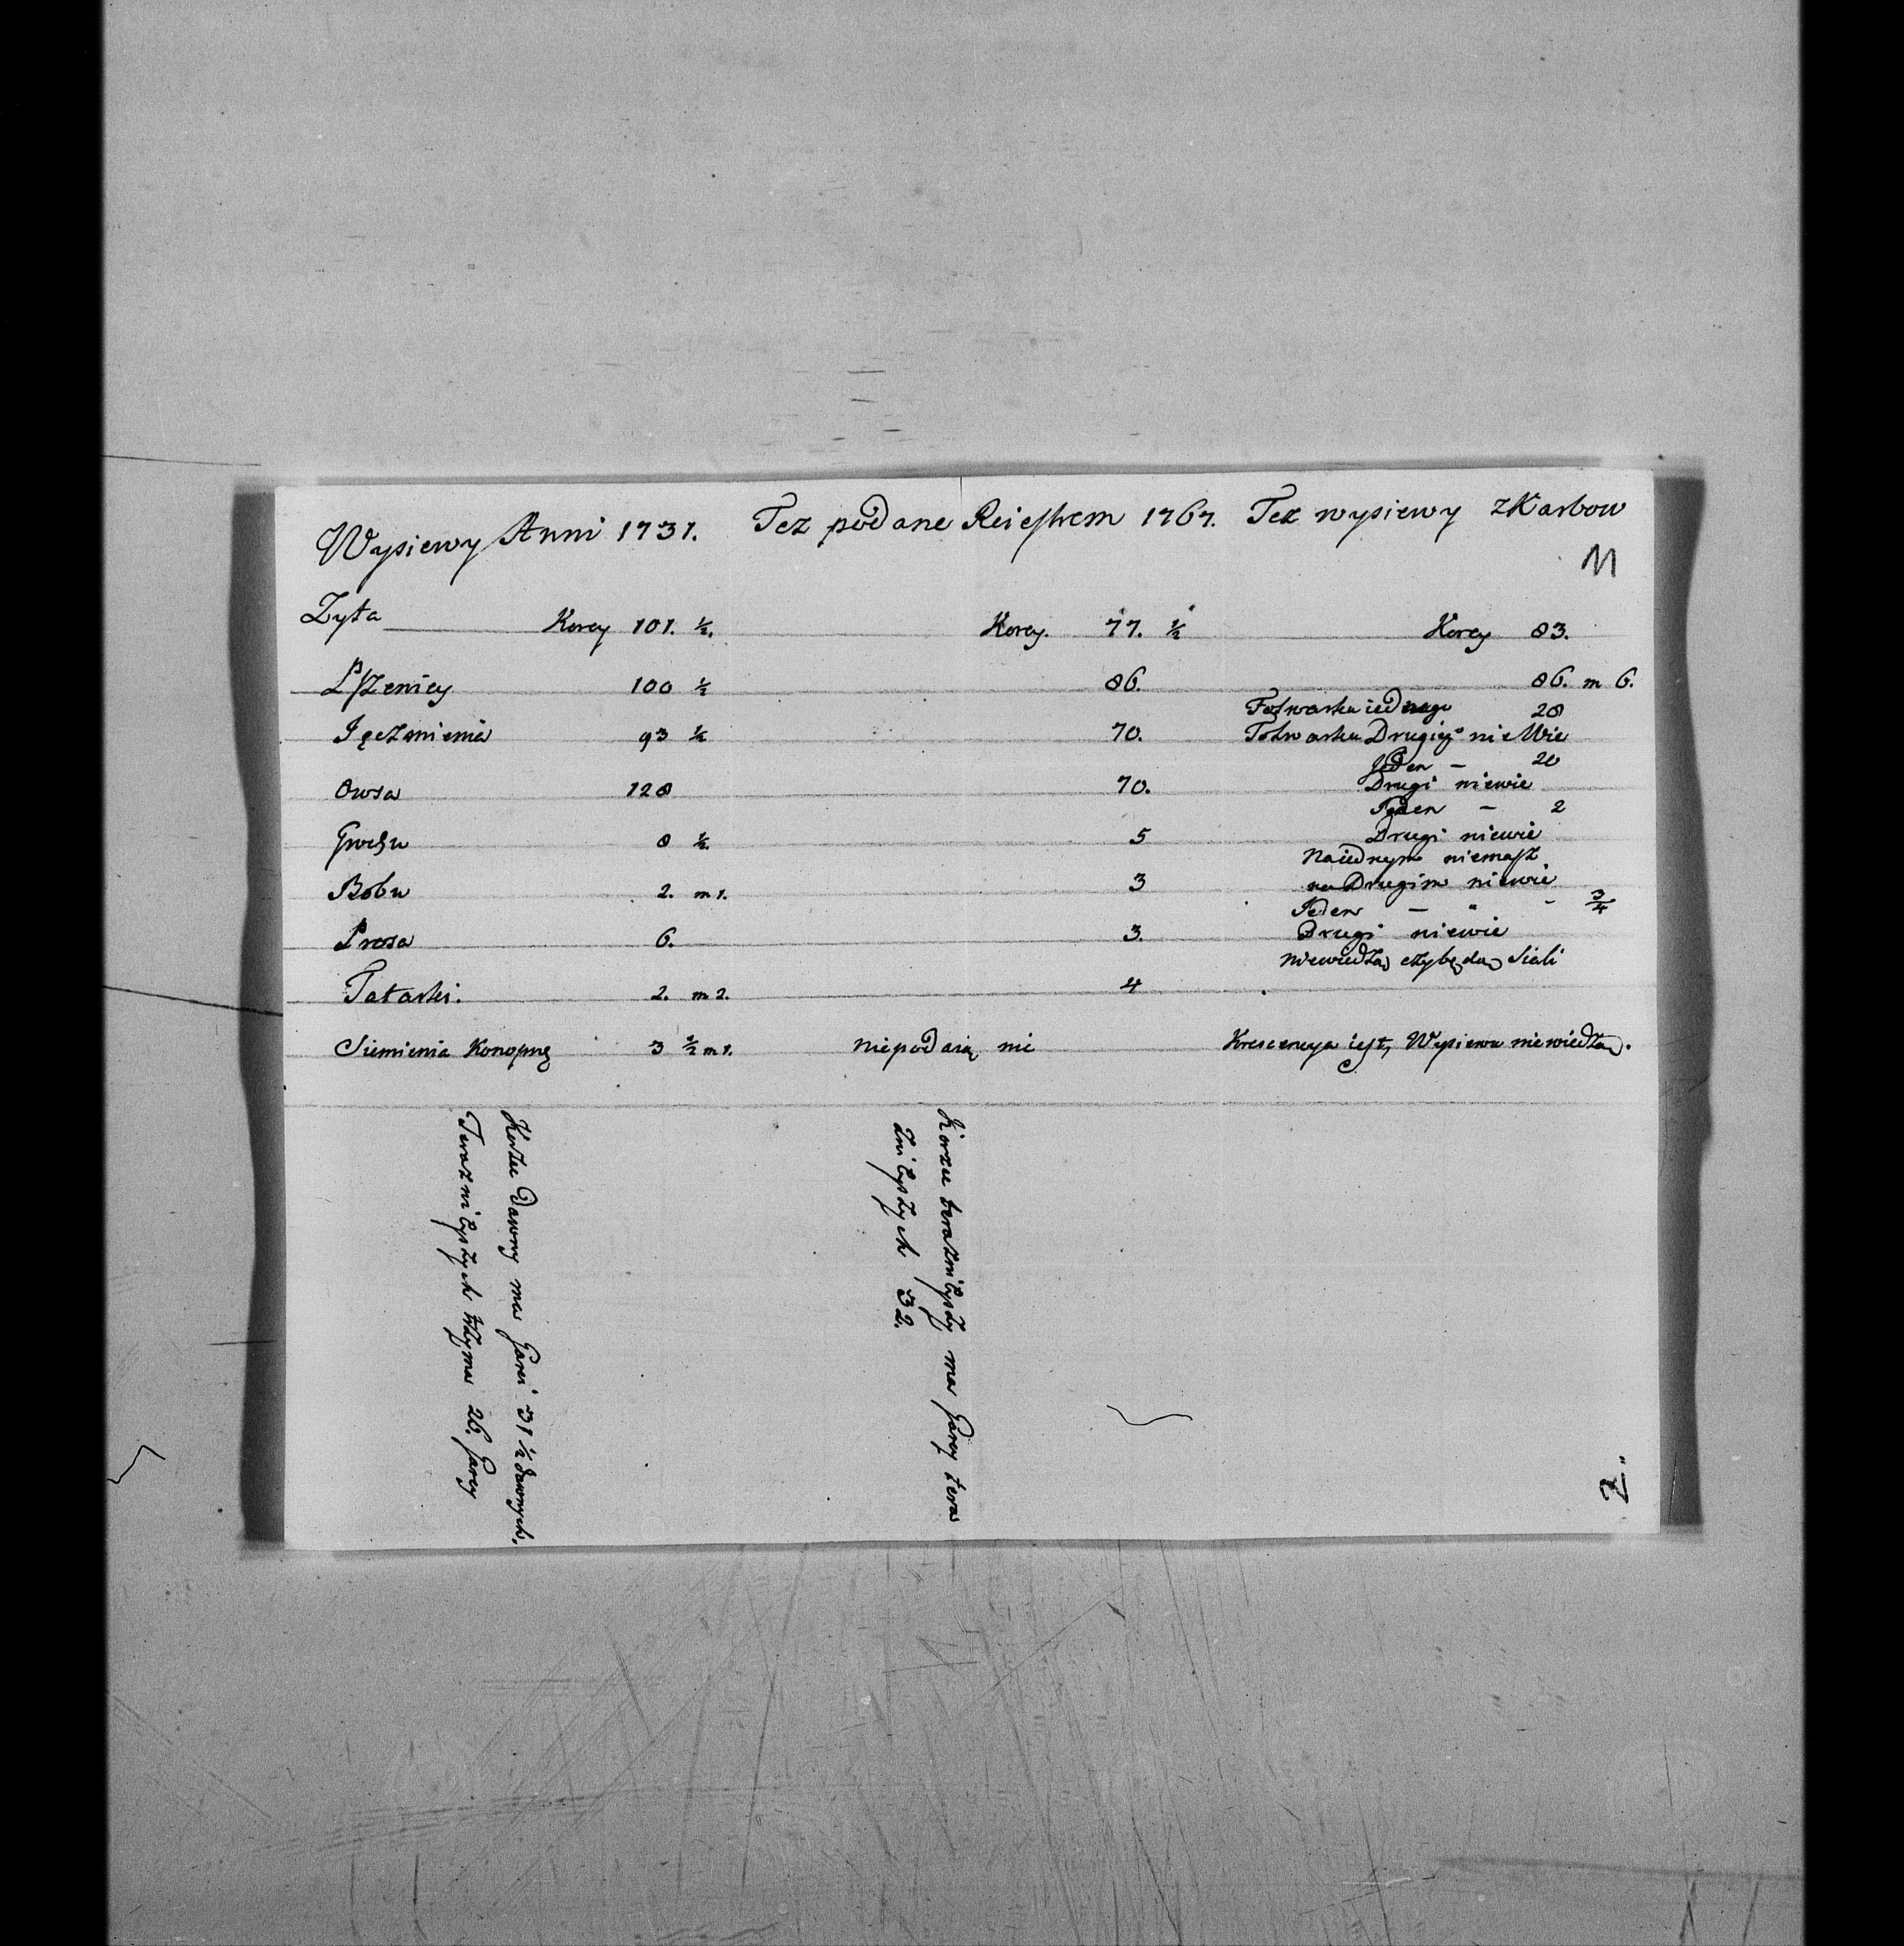 Wysiewy Anni 1731. Tez podane Reiestrem 1767. Tez wysiewy z Karbow
11
Zyta Korcy 101. ½. Korcy. 77. ½ Korcy 83.
Pszenicy 100 ½ 86. 86. m 6.
Folwarku iednego 28
Jęczmienia 93 ½ 70. Folwarku Drugieg° nie Wie
Jeden – 20
Owsa 128 70. Drugi niewie
Jeden – 2
Grochu 8 ½ 5 Drugi niewie
Naiednym niemasz
Bobu 2. m 1. 3 na Drugim niewie
Jeden – " - ¾
Prosa 6. 3. Drugi niewie
niewiedzą czybędą Siali
Tatarki. 2. m 2. 4
Siemienia Konopne 3 ½ m 1. niepodaią nic Krescencya iest, Wysiewu niewiedzą.
Korzec Dawny ma Garcy 31 ½ dawnych,
Teraznieyszych 26. Garcy
Korzec teraznieyszy ma Garcy tera
znieyszych 32.
2.